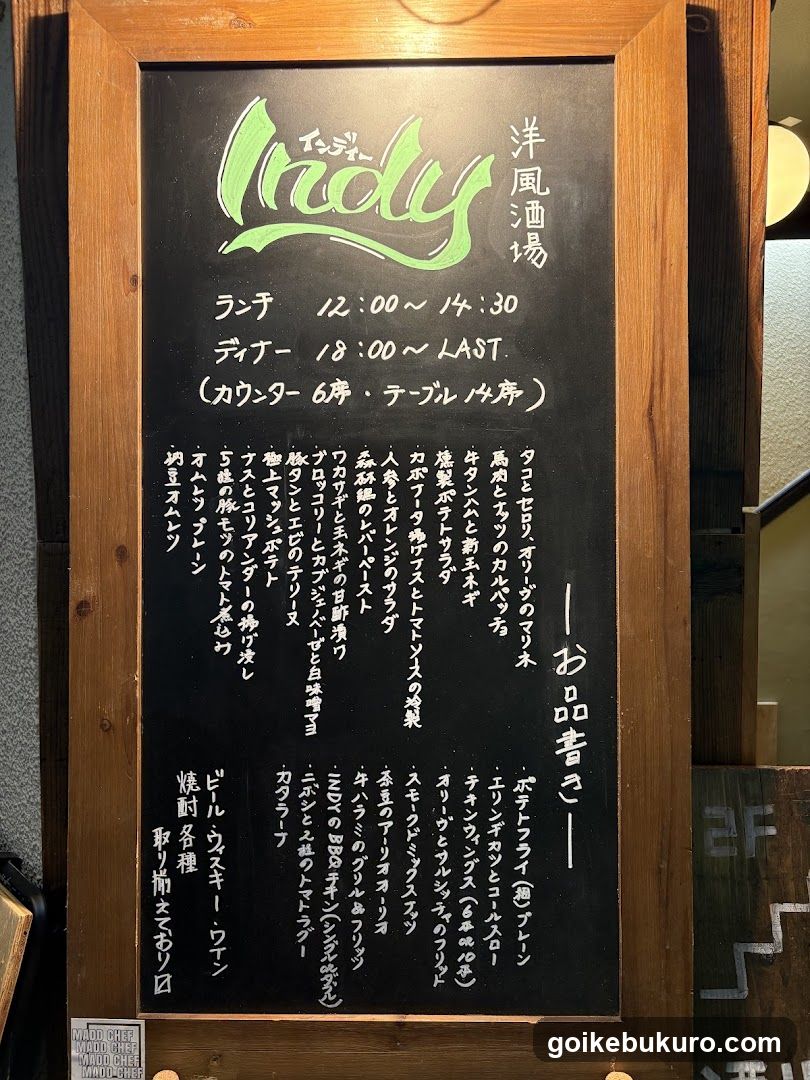 洋風酒場
インディー
Indy
ランチ 12:00〜14:30
ディナー 18:00〜LAST.
(カウンター 6席・テーブル 14席)
―お品書き―
・タコとセロリ、オリーヴのマリネ
・馬肉とナッツのカルペッチョ
・牛タンハムと新玉ネギ
・燻製ポテトサラダ
・カポナータ 揚げナスとトマトソースの冷製
・人参とオレンジのサラダ
・森林鶏のレバーペースト
・ワカサギと玉ネギの甘酢漬け
・ブロッコリーとカブジェノベーゼと白味噌マヨ
・豚タンとエビのテリーヌ
・極上マッシュポテト
・ナスとコリアンダーの揚げ浸し
・5種の豚モツのトマト煮込み
・オムレツ プレーン
・納豆オムレツ
・ポテトフライ(細)プレーン
・エリンギカツとコールスロー
・チキンウィングス(6本or10本)
・オリーヴとサルシッチャのフリット
・スモークドミックスナッツ
・茶豆のアーリオオーリオ
・牛ハラミのグリル&フリッツ
・INDYのBBQチキン(シングルorダブル)
・ニボシと

のトマトラグー
・カタラーナ
ビール・ウィスキー・ワイン
焼酎 各種
取り揃えており〼
2F
MADD CHEF
MADD CHEF
MADD CHEF
MADD CHEF
goikebukuro.com